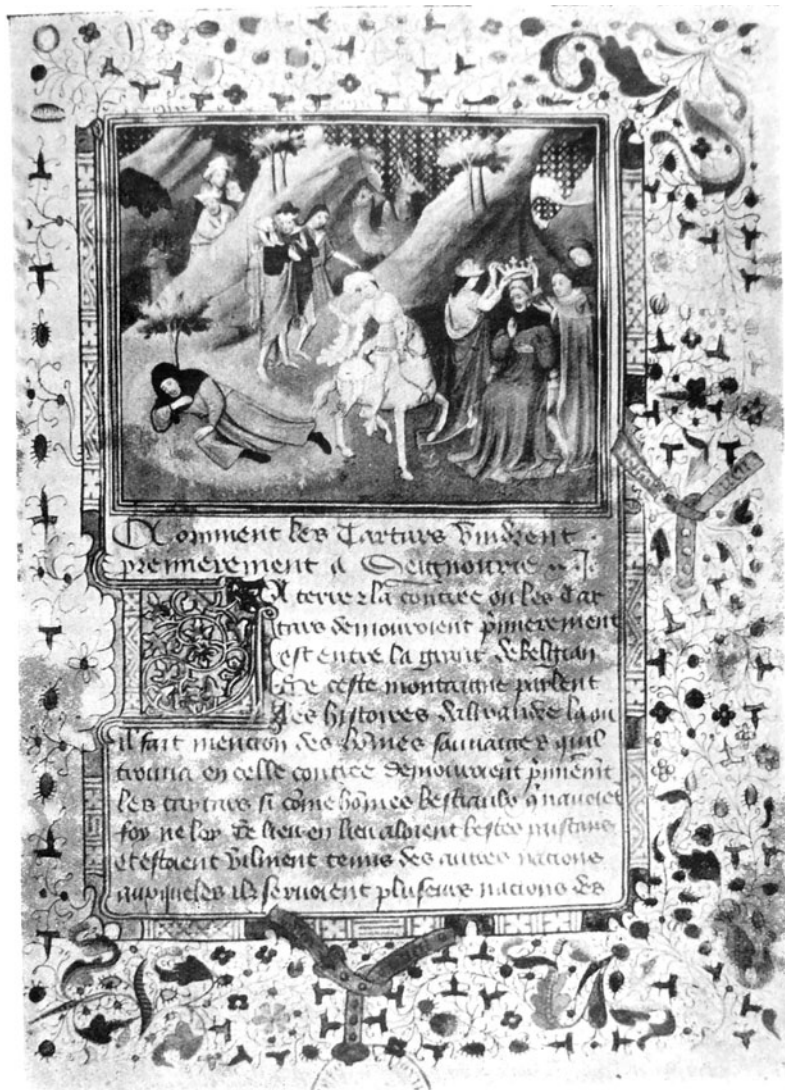 Comment les Tartars vindrent
premierement a Seignourie
La terre & la contree ou les Tar
tars demouroient p̄mierement
est entre la grant de Belgian
De ceste montaigne parlent
les histoires dalixandre la ou
il fait mencion des hōmes sauvaiges quil
trouva en celle contree demouroient p̄miem̄t
les tartars si cōme hōmes bestiaulx q̄ navoiēt
foy ne loy de lieu en lieu aloient bestes
et estoient vilment tenus des autres nacions
auxqueles ilz servoient pluseurs nacions des